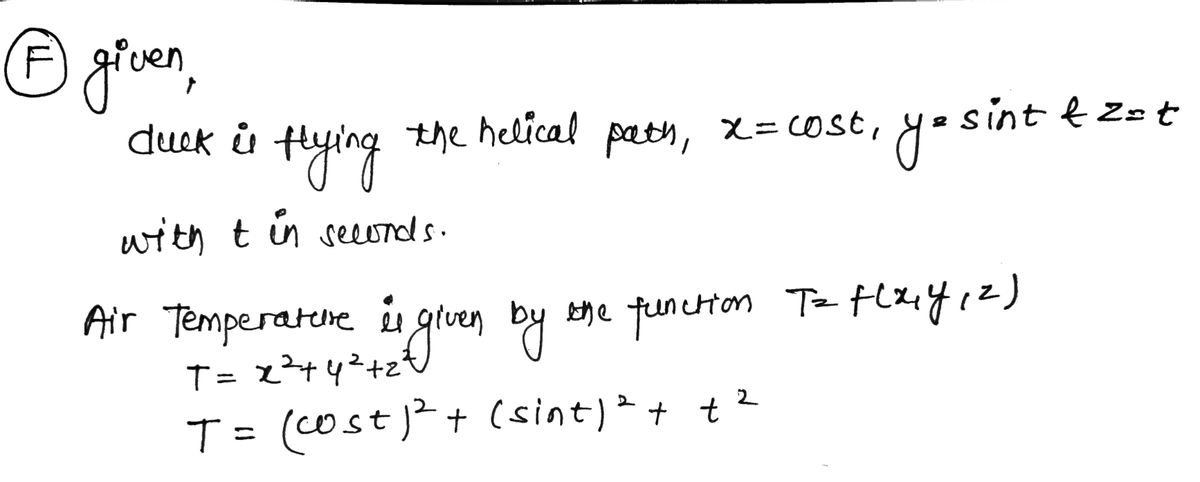 Ⓕ given,
duck is flying the helical path, x = cost, y = sint & z = t
with t in seconds.
Air Temperature is given by the function T = f(x, y, z)
T = x² + y² + z²
T = (cost)² + (sint)² + t²